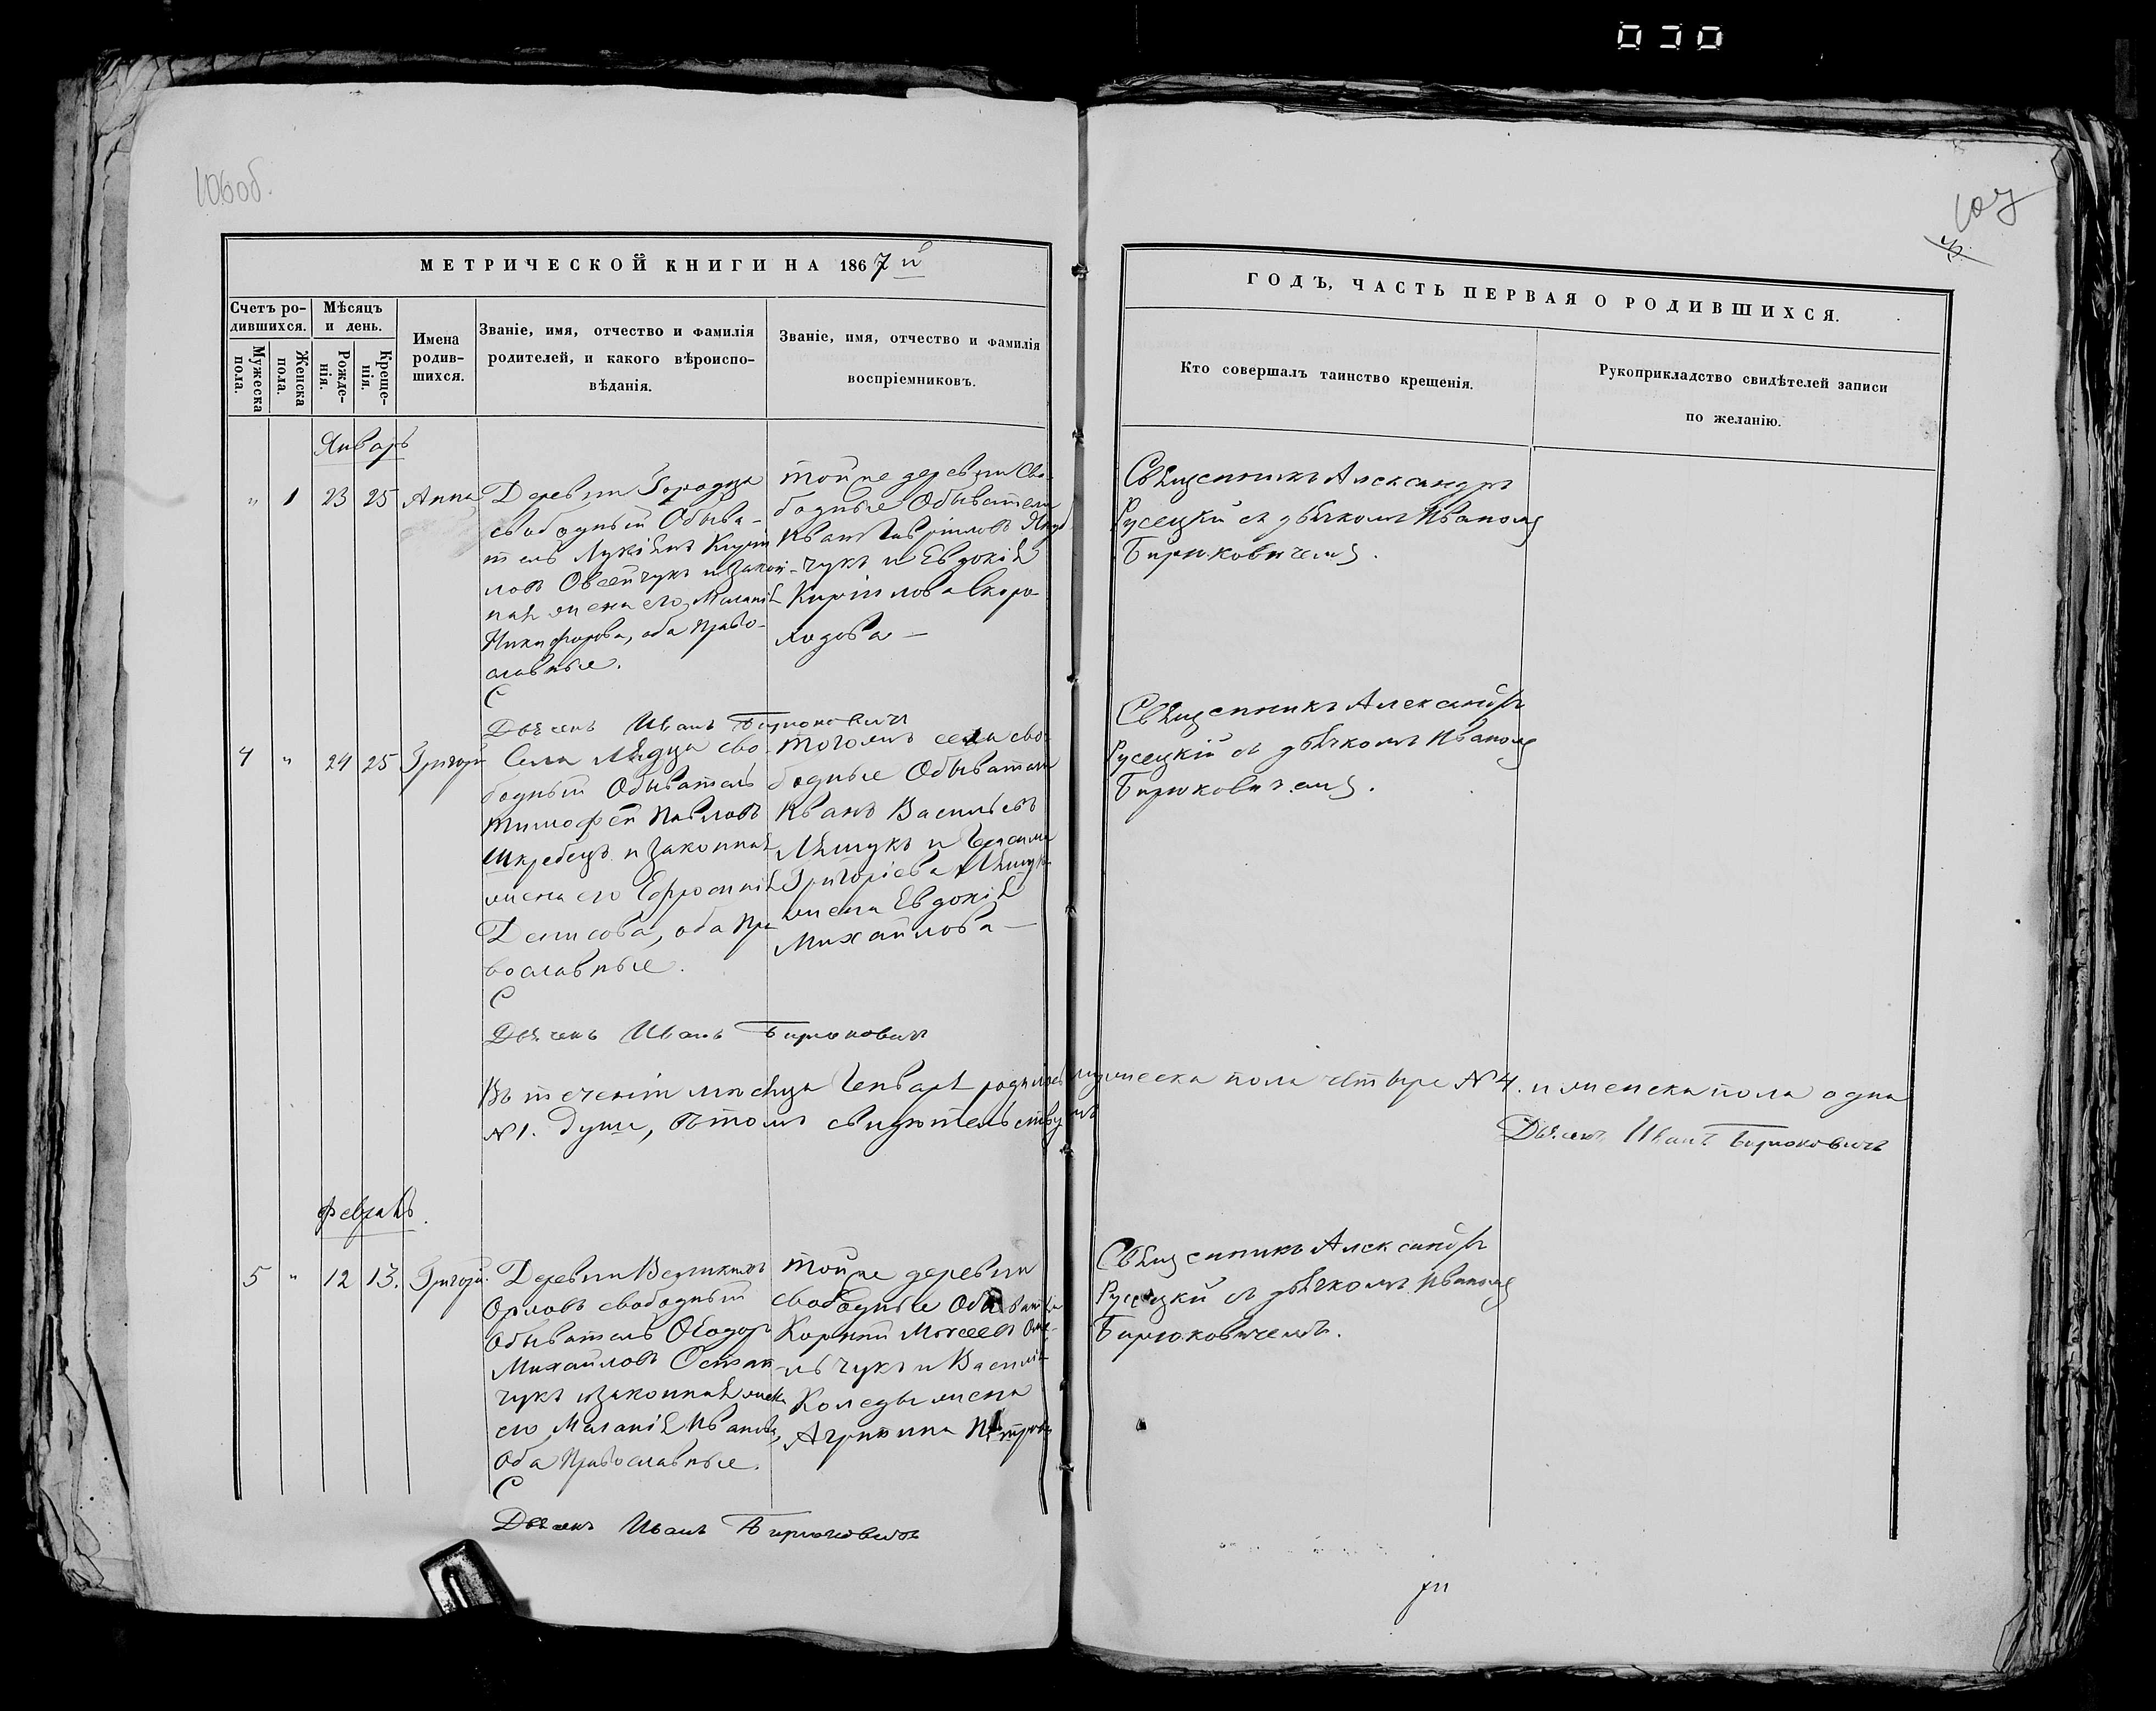 030
106об.
107
МЕТРИЧЕСКОЙ КНИГИ НА 1867й
ГОДЪ, ЧАСТЬ ПЕРВАЯ О РОДИВШИХСЯ.
Счетъ ро-
дившихся.
Мужеска
пола.
Женска
пола.
Мѣсяцъ
и день.
Рожде-
нія.
Креще-
нія.
Имена
родив-
шихся.
Званіе, имя, отчество и фамилія
родителей, и какого вѣроиспо-
вѣданія.
Званіе, имя, отчество и фамилія
воспріемниковъ.
Кто совершалъ таинство крещенія.
Рукоприкладство свидѣтелей записи
по желанію.
Январь
" 1 23 25 Анна
Деревни Городца
свободный Обыва-
тель Лукіянъ Кирил
ловъ Овсейчукъ и закон
ная жена его Маланія
Никифорова, оба право-
славные.
тойже деревни Сво-
бодные Обыватели
Иванъ Гавріиловъ
-чукъ и Евдокія
Кириллова Скоро
ходова —
Священникъ Александръ
Русецкій съ дьячкомъ Иваномъ
Бирюковичемъ.
С
Дьячекъ Иванъ Бирюковичъ
4 " 24 25 Григорій
Села Лядца сво-
бодный Обыватель
Тимофей Павловъ
Шкребецъ и законная
жена его Ефросинія
Денисова, оба пра-
вославные.
тогожъ села сво-
бодные Обыватели
Иванъ Васильевъ
Лящукъ и Герасима
Григоріева Лящука
жена Евдокія
Михайлова —
Священникъ Александръ
Русецкій съ дьячкомъ Иваномъ
Бирюковичемъ.
С
Дьячекъ Иванъ Бирюковичъ
Въ теченіи мѣсяца Генваря родилось мужеска пола четыре №4. и женска пола одна
№1. душа, въ томъ свидѣтельствуемъ
Дьячекъ Иванъ Бирюковичъ
Февраль.
5 " 12 13. Григорій.
Деревни Великихъ
Орловъ свободный
Обыватель Ѳеодоръ
Михайловъ Остап
чукъ и законная жена
его Маланія Иванова,
оба Православные.
тойже деревни
свободные Обыватели
Корнилій Моѵсеевъ Оме-
льчукъ и Василія
Коледы жена
Агрипина Петрова
Священникъ Александръ
Русецкій съ дьячкомъ Иваномъ
Бирюковичемъ.
С
Дьячекъ Иванъ Бирюковичъ